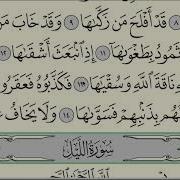 ٨ قَدْ أَفْلَحَ مَن زَكَّىٰهَا ٩ وَقَدْ خَابَ مَن
ثَمُودُ بِطَغْوَىٰهَا ١١ إِذِ ٱنۢبَعَثَ أَشْقَىٰهَا ١٢
نَاقَةَ ٱللَّهِ وَسُقْيَٰهَا ١٣ فَكَذَّبُوهُ فَعَقَرُو
بِذَنۢبِهِمْ فَسَوَّىٰهَا ١٤ وَلَا يَخَافُ
سُورَةُ اللَّيْلِ